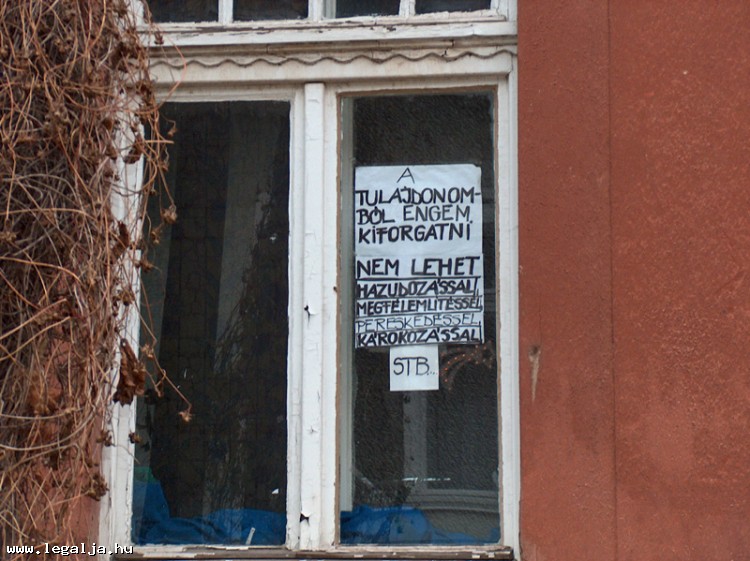 A
TULAJDONOM-
BÓL ENGEM,
KIFORGATNI
NEM LEHET
HAZUDOZÁSSAL,
MEGFÉLEMLITÉSSEL,
PERESKEDÉSSEL,
KÁROKOZÁSSAL,
STB...
www.legalja.hu